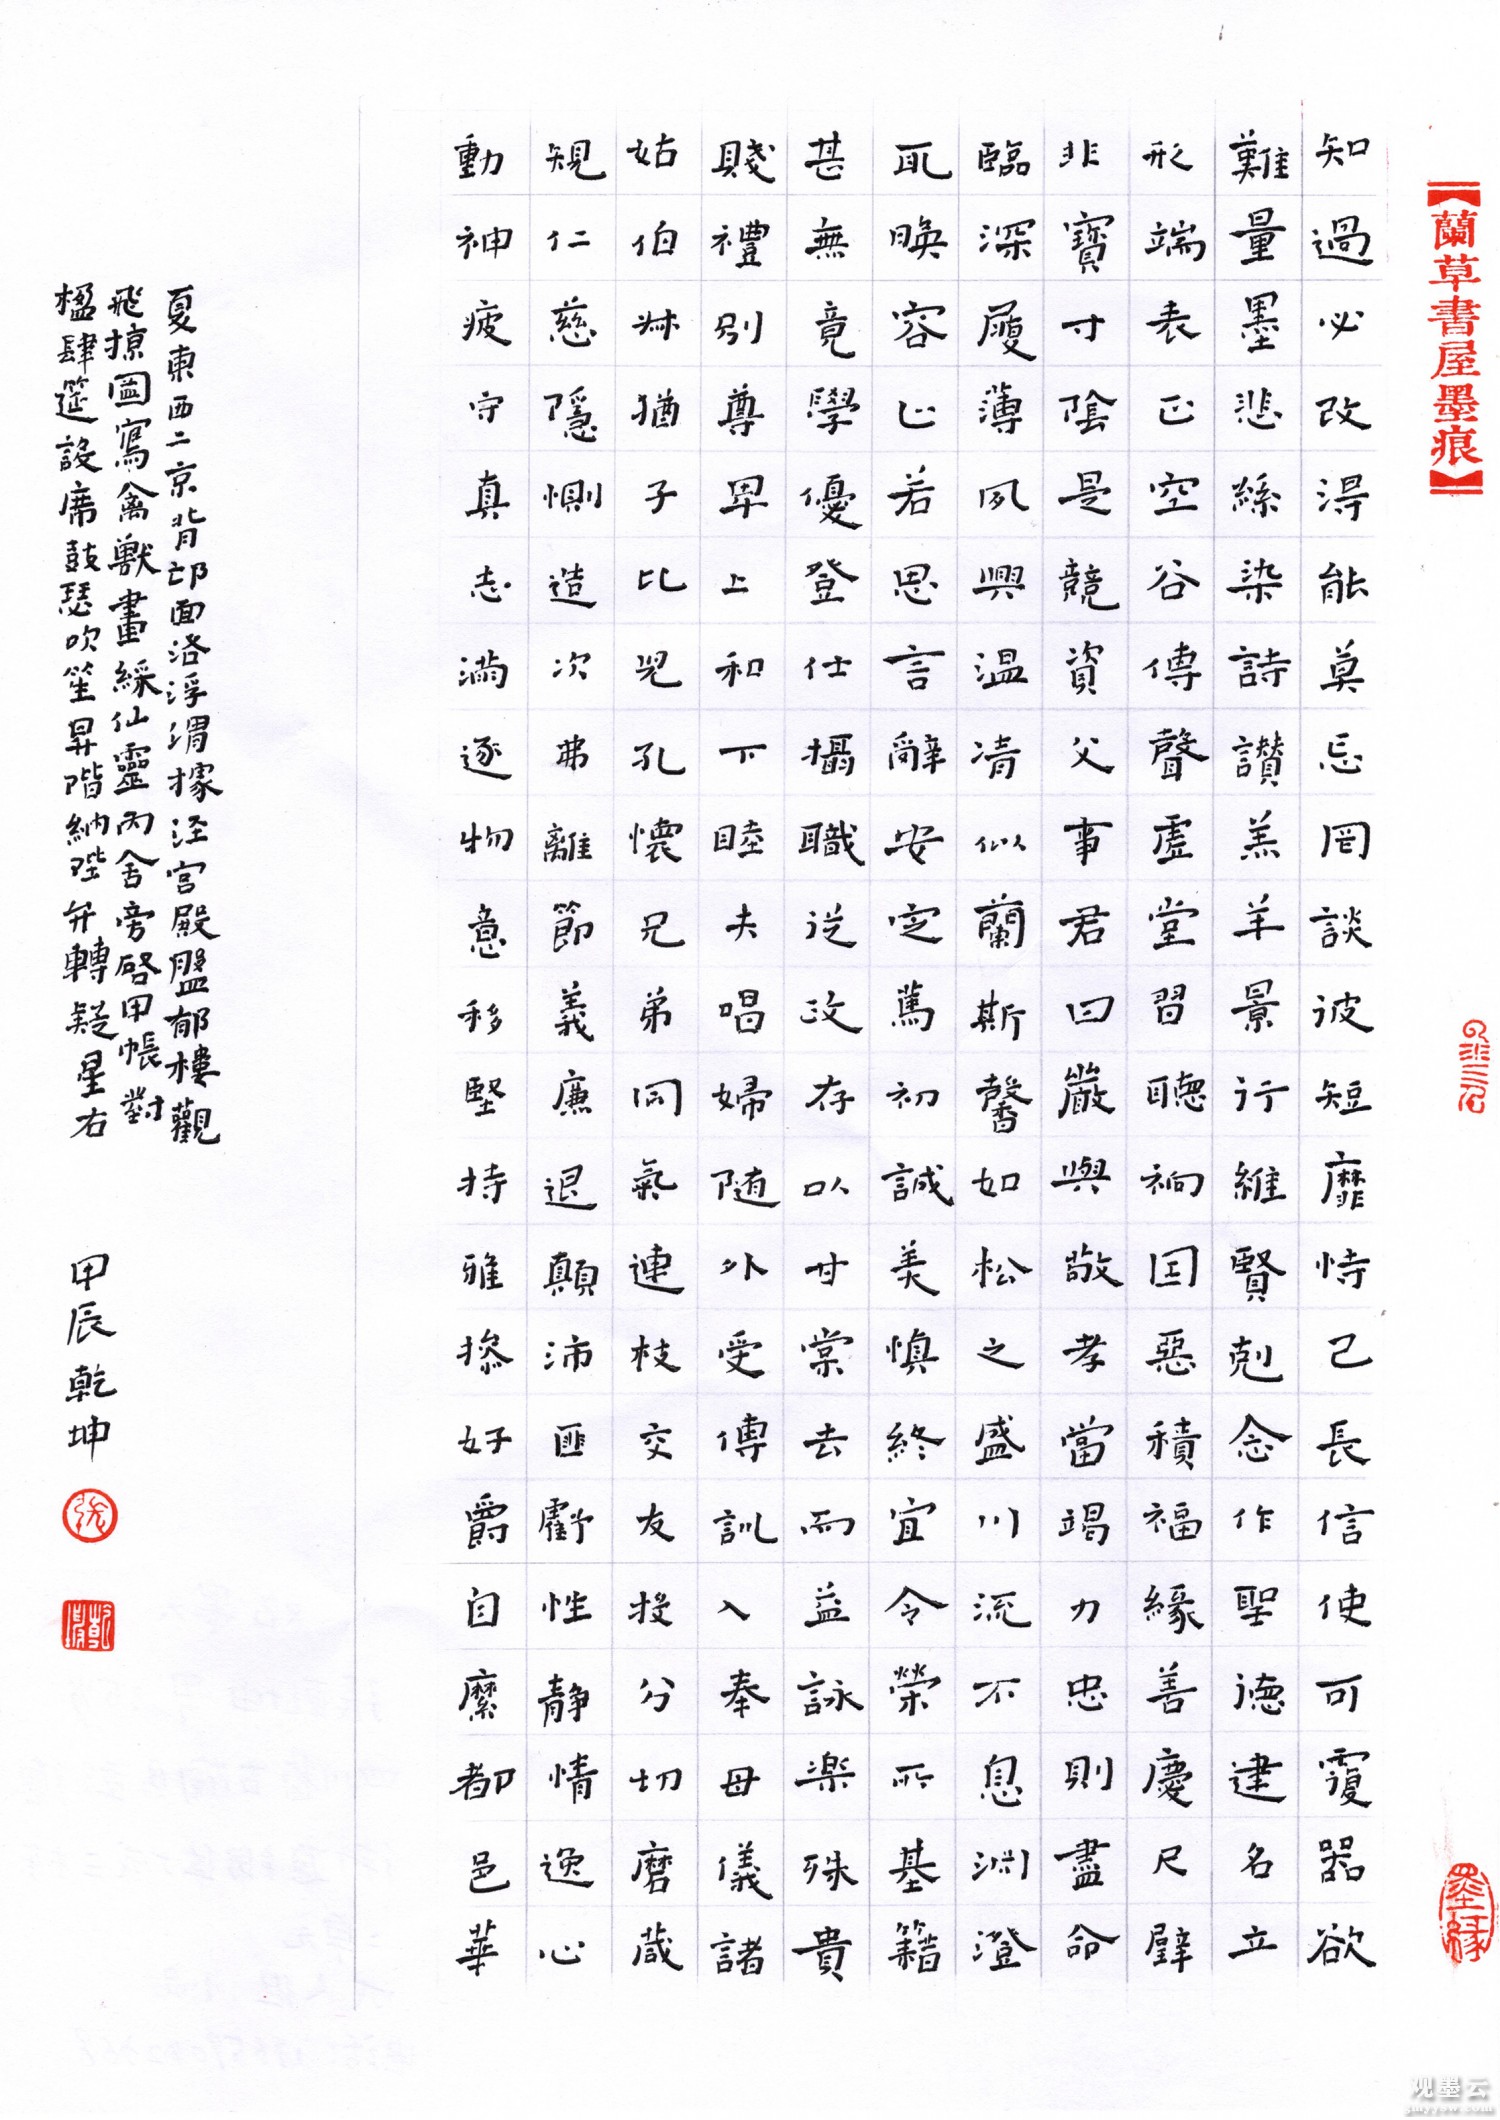 【蘭草書屋墨痕】
知過必改得能莫忘罔談彼短靡恃己長信使可覆器欲
難量墨悲絲染詩讚羔羊景行維賢剋念作聖德建名立
形端表正空谷傳聲虛堂習聽禍因惡積福緣善慶尺璧
非寶寸陰是競資父事君曰嚴與敬孝當竭力忠則盡命
臨深履薄夙興溫清似蘭斯馨如松之盛川流不息淵澄
取暎容止若思言辭安定篤初誠美慎終宜令榮所基籍
甚無竟學優登仕攝職從政存以甘棠去而益詠樂殊貴
賤禮別尊卑上和下睦夫唱婦隨外受傅訓入奉母儀諸
姑伯叔猶子比兒孔懷兄弟同氣連枝交友投分切磨箴
規仁慈隱惻造次弗離節義廉退顛沛匪虧性靜情逸心
動神疲守真志滿逐物意移堅持雅操好爵自縻都邑華
夏東西二京背邙面洛浮渭據涇宮殿盤郁樓觀
飛掠圖寫禽獸畫綵仙靈丙舍旁啟甲帳對
楹肆筵設席鼓瑟吹笙昇階納陛弁轉疑星右
甲辰乾坤
張
墨緣
观墨云